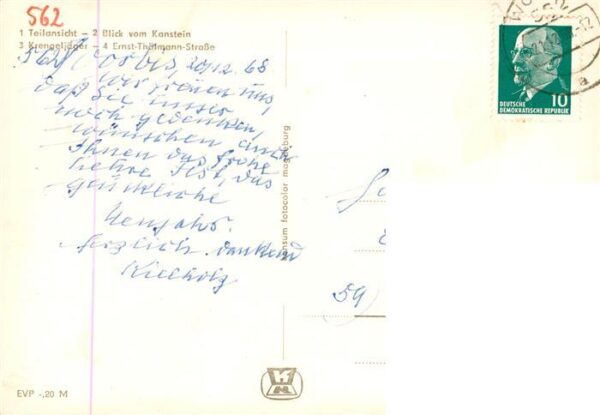 562
1 Teilansicht – 2 Blick vom Kanstein
3 Krengeljäger – 4 Ernst-Thälmann-Straße
562 Worbis, 20.12.68
Wir freuen uns,
daß Sie unser
noch gedenken,
wünschen auch
Ihnen das frohe
liebe Fest, das
glückliche
Neujahr.
Herzlich dankend
Kiellholz
konsum fotocolor magdeburg
DEUTSCHE
DEMOKRATISCHE REPUBLIK
10
59)
EVP -,20 M